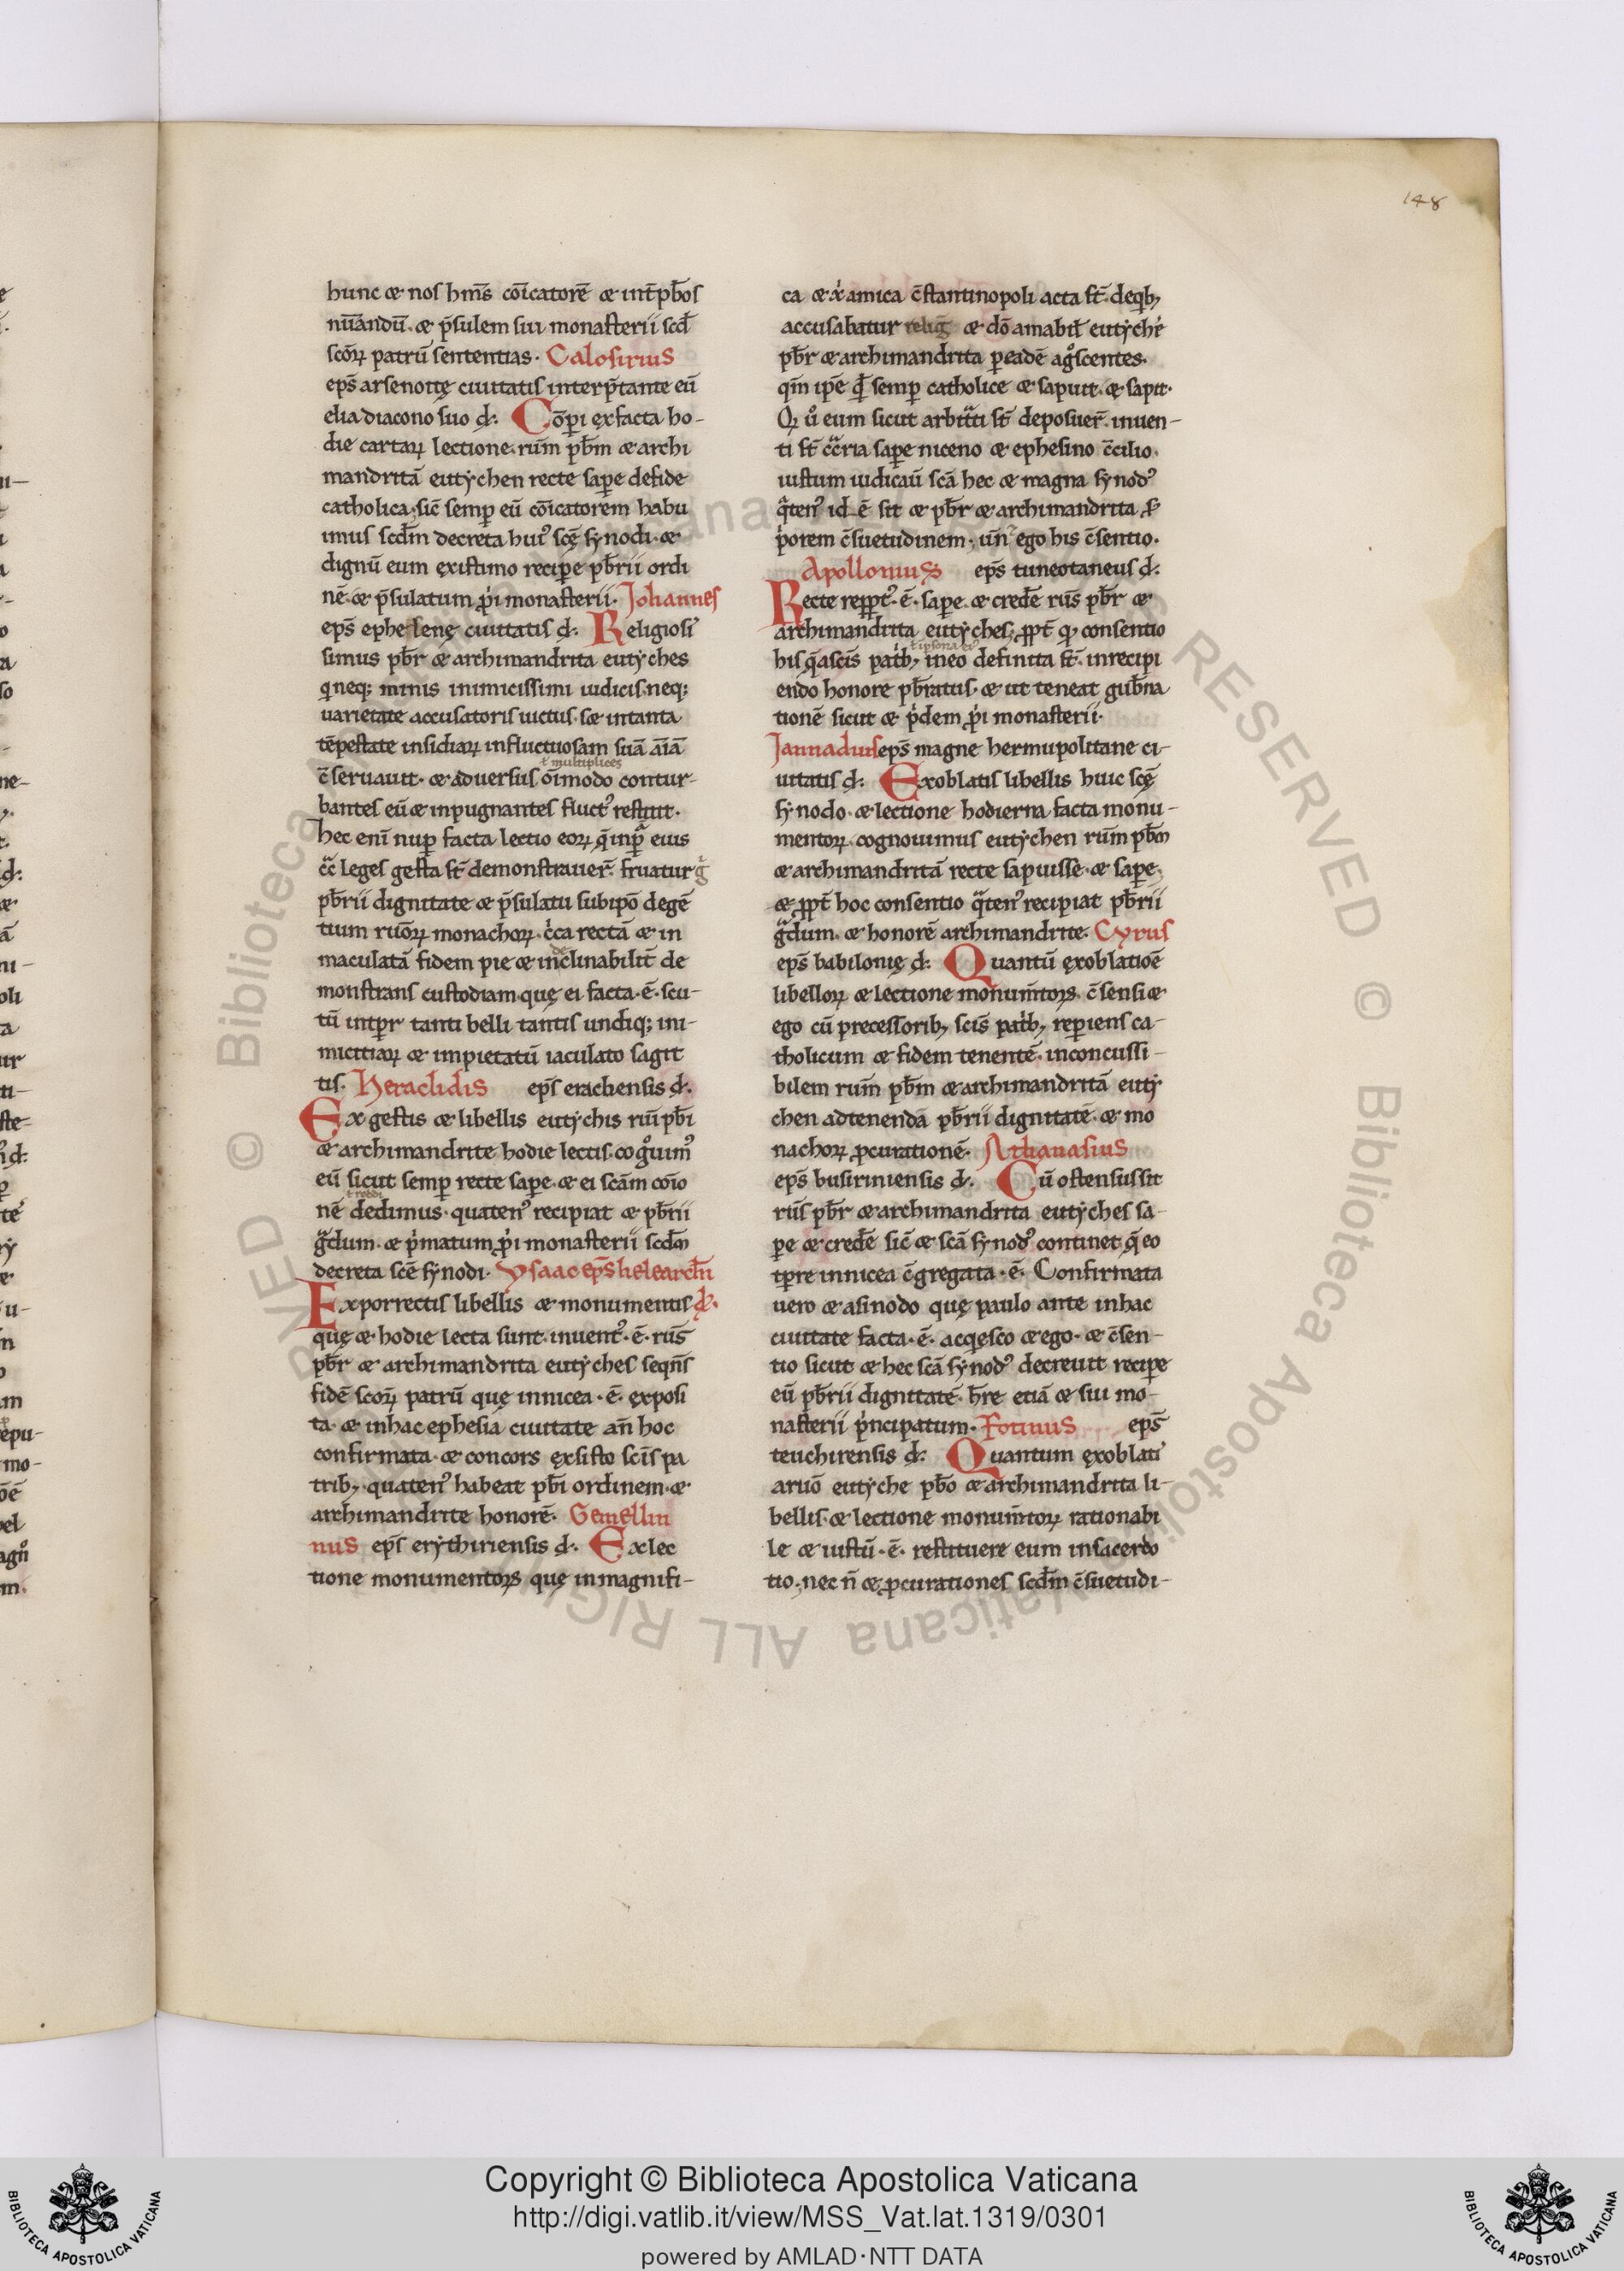 148
hunc & nos hm̅s co̅icatore̅ & int̅ pb̅ros
nu̅andu̅. & p̅sulem sui monasterii scd̅
sco̅ꝝ patru̅ sententias. Calosirius
ep̅s arsenoite̜ ciuitatis interp̅tante eu̅
elia diacono suo d̅. Co̅ꝑi exfacta ho-
die cartaꝝ lectione. ru̅m pb̅m & archi
mandrita̅ eutychen recte saꝑe defide
catholica, sic̅ semꝑ eu̅ co̅icatorem habu
imus scd̅m decreta huiꝰ sce̜̅ synodi. &
dignu̅ eum existimo reciꝑe pb̅rii ordi
ne̅. & p̅sulatum ꝓ̍i monasterii. Johannes
ep̅s ephesene̜ ciuitatis d̅. Religiosi
simus pb̅r & archimandrita eutyches
q neq; minis inimicissimi iudicis, neq;
uarietate accusatoris uictus. s& intanta
te̅pestate insidiaꝝ influctuosam sua̅ a̅ia̅
ł multiplices
c̅seruauit. & aduersus o̅imodo contur-
bantes eu̅ & inpugnantes fluctꝰ restitit.
hec eni̅ nuꝑ facta lectio eoꝝ q̅ inp̅ eius
leges gesta st̅ demonstrauer̅. fruatur g̍
pb̅rii dignitate & p̅sulatu subip̅o dege̅
tium ruo̅ꝝ monachoꝝ. c̍ca recta̅ & in
de
maculata̅ fidem pie & inclinabilit̅ de
monstrans custodiam. que̜ ei facta. e̅. scu-
tu̅ intꝑr tanti belli tantis undiq; ini-
micitiaꝝ & impietatu̅ iaculato sagit
tis. Heraclidis ep̅s eracliensis d̅.
Ex gestis & libellis eutychis ru̅i pb̅i
& archimandrite hodie lectis. cogͦuimꝰ
eu̅ sicut semꝑ recte saꝑe. & ei sca̅m co̅io
ł reddi
ne̅ dedimus. quatenꝰ recipiat & pb̅rii
g̅dum. & p̍matum ꝓ̍i monasterii scd̅m
decreta sce̅ synodi. Ysaac ep̅s helearch̅n
Exporrectis libellis & monumentis d̅.
que̜ & hodie lecta sunt. inuentꝰ. e̅. ru̅s
pb̅r & archimandrita eutyches seqn̅s
fide̅ scoꝝ̅ patru̅ que̜ innicea. e̅. exposi
ta. & inhac ephesia ciuitate an̅ hoc
confirmata. & concors exsisto sci̅s pa
trib; quatenꝰ habeat pb̅i ordinem. &
archimandrite honore̅. Gemellin
nus ep̅s erythiriensis d̅. Exlec
tione monumentoꝝ que̜ inmagnifi-
ca & xp̍i amica c̅stantinopoli acta st̅. deqb;
accusabatur relig̅ & do̅ amabil̅ eutyche̍
pb̅r & archimandrita ꝑeade̅ agͦscentes.
qm̅ ip̅e qd̅ semꝑ catholice & sapuit. & sapit.
Qꝛ uͦ eum sicut arbit̅ti st̅ deposuer̅. inuen-
ti st̅ c̅c̅ria saꝑe niceno & ephesino c̅cilio.
iustum iudicau̅ sca̅ hec & magna synodꝰ
q̅tenꝰ id e̅ sit & pb̅r & archimandrita ꝑ
p̍orem c̅suetudinem. un̅ ego his c̅sentio.
Apollonius ep̅s tuneotaneus d̅.
Recte repp̅tꝰ. e̅. saꝑe. & crede̅ ru̅s pb̅r &
archimandrita eutyches, ꝓpt̅ qd consentio
his q̅ asci̅s pat̍b; ineo definita st̅. inrecipi
endo honore pb̅ratus. & ut teneat gub̅na
tione̅ sicut & p̍dem ꝓ̍i monasterii.
Jannadius ep̅s magne hermupolitane ci-
uitatis d̅. Exoblatis libellis huic sce̜̅
synodo. & lectione hodierna facta monu-
mentoꝝ. cognouimus eutychen ru̅m pb̅m
& archimandrita̅ recte sapuisse. & saꝑe.
& ꝓpt̅ hoc consentio q̅tenꝰ recipiat pb̅rii
g̅dum. & honore̅ archimandrite. Cyrus
ep̅s babilonie̜ d̅. Quantu̅ exoblatio̅e
libelloꝝ & lectione monum̅toꝝ. c̅sensi &
ego cu̅ precessorib; sci̅s pat̍b; reꝑiens ca-
tholicum & fidem tenente̅. inconcussi-
bilem ru̅m pb̅m & archimandrita̅ euty
chen adtenenda̅ pb̅rii dignitate̅. & mo
nachoꝝ ꝓcuratione̅. Athanasius
ep̅s busiriniensis d̅. Cu̅ ostensus sit
ru̅s pb̅r & archimandrita eutyches sa-
ꝑe & crede̅ sic̅ & sca̅ synodꝰ continet q̅ eo
tp̅re innicea c̅gregata. e̅. Confirmata
uero & asinodo que̜ paulo ante inhac
ciuitate facta. e̅. acqesco & ego. & c̅sen-
tio sicut & hec sca̅ synodꝰ decreuit reciꝑe
eu̅ pb̅rii dignitate̅. h̅re etia̅ & sui mo-
nasterii p̍ncipatum. Fotinus ep̅s
teuchirensis d̅. Quantum exoblati
aruo̅ eutyche pb̅o & archimandrita li-
bellis. & lectione monum̅toꝝ rationabi
le & iustu̅. e̅. restituere eum insacerdo
tio. nec n̅ & ꝓcurationes scd̅m c̅suetudi-
Copyright © Biblioteca Apostolica Vaticana
http://digi.vatlib.it/view/MSS_Vat.lat.1319/0301
powered by AMLAD·NTT DATA
BIBLIOTECA APOSTOLICA VATICANA
BIBLIOTECA APOSTOLICA VATICANA